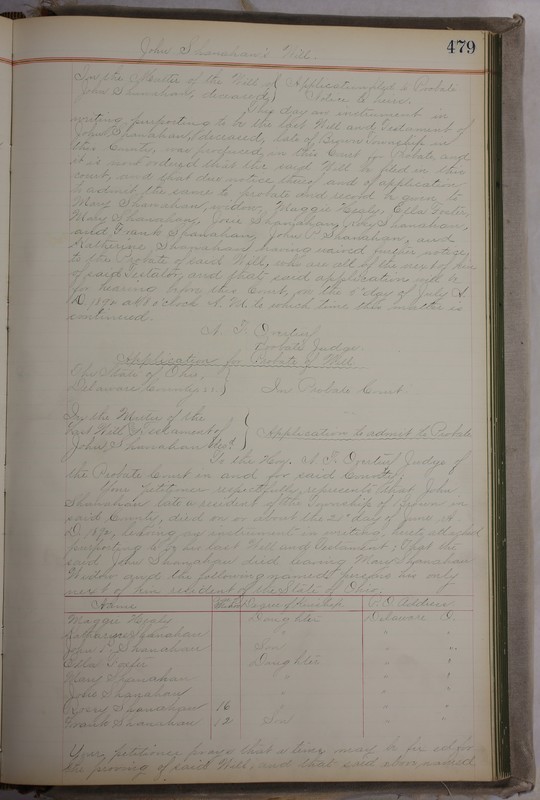 John Shanahan's Will.
479
In the Matter of the Will of } Application filed to Probate
John Shanahan, deceased, } Notice to heirs.
This day an instrument in
writing purporting to be the last Will and Testament of
John Shanahan, deceased, late of Brown Township in
this County, was produced in this Court for Probate, and
it is now ordered that the said Will be filed in this
court, and that due notice thereof and of application
to admit the same to probate and record be given to
Mary Shanahan, widow, Maggie Healy, Ella
Mary Shanahan, Josie Shanahan, Rosy Shanahan,
and Frank Shanahan, John P. Shanahan, and
Katherine Shanahan having waived further notice,
to the Probate of said Will, who are all of the next of kin
of said Testator, and that said application will be
for hearing before this Court, on the day of July A.
D. 1890 at o'clock A. M. to which time this matter is
continued.
Probate Judge.
Application for Probate of Will
The State of Ohio, }
Delaware County ss. } In Probate Court.
In the Matter of the
Last Will & Testament of } Application to admit to Probate
John Shanahan Dec'd.
To the Hon. Judge of
the Probate Court in and for said County;
Your petitioner respectfully represents that John
Shanahan late a resident of the Township of Brown in
said County, died on or about the day of June, A.
D. 1890, leaving an instrument in writing, hereto attached
purporting to be his last Will and Testament; That the
said John Shanahan died leaving Mary Shanahan
Widow and the following named persons his only
next of kin resident of the State of Ohio,
Name Degree of Kinship P.O. Address
Maggie Healy Daughter Delaware O.
Katharine Shanahan " "
John P. Shanahan Son "
Ella Daughter "
Mary Shanahan " "
Josie Shanahan " "
Rosy Shanahan 16 " "
Frank Shanahan 12 Son "
Your petitioner prays that a time may be fixed for
the proving of said Will, and that said above named